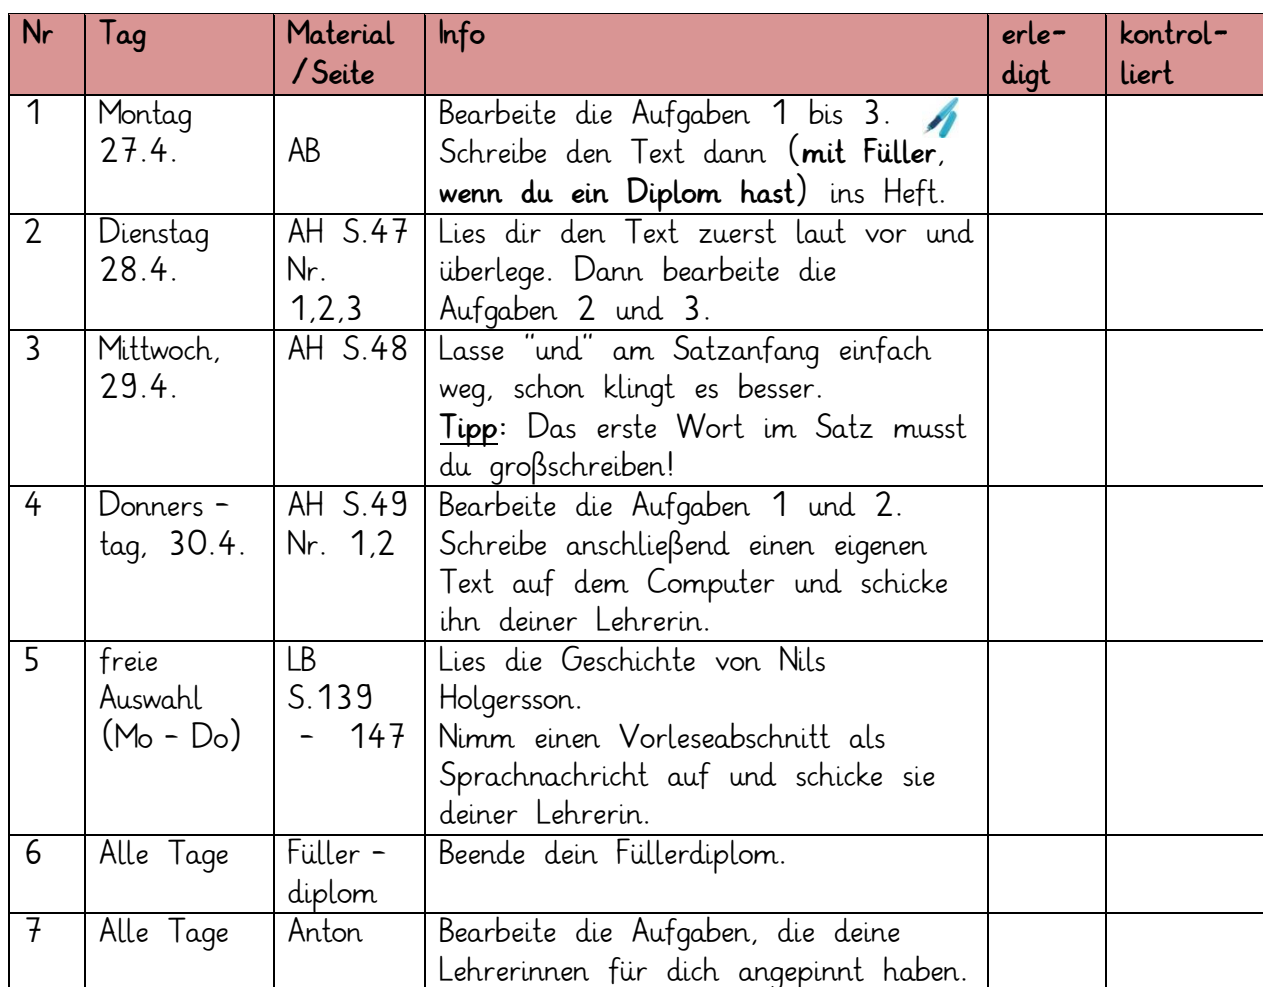 Nr Tag Material Info erle- kontrol-
/Seite digt liert
1 Montag Bearbeite die Aufgaben 1 bis 3.
27.4. AB Schreibe den Text dann (mit Füller,
wenn du ein Diplom hast) ins Heft.
2 Dienstag AH S.47 Lies dir den Text zuerst laut vor und
28.4. Nr. überlege. Dann bearbeite die
1,2,3 Aufgaben 2 und 3.
3 Mittwoch, AH S.48 Lasse "und" am Satzanfang einfach
29.4. weg, schon klingt es besser.
Tipp: Das erste Wort im Satz musst
du großschreiben!
4 Donners - AH S.49 Bearbeite die Aufgaben 1 und 2.
tag, 30.4. Nr. 1,2 Schreibe anschließend einen eigenen
Text auf dem Computer und schicke
ihn deiner Lehrerin.
5 freie LB Lies die Geschichte von Nils
Auswahl S.139 Holgersson.
(Mo - Do) - 147 Nimm einen Vorleseabschnitt als
Sprachnachricht auf und schicke sie
deiner Lehrerin.
6 Alle Tage Füller - Beende dein Füllerdiplom.
diplom
7 Alle Tage Anton Bearbeite die Aufgaben, die deine
Lehrerinnen für dich angepinnt haben.